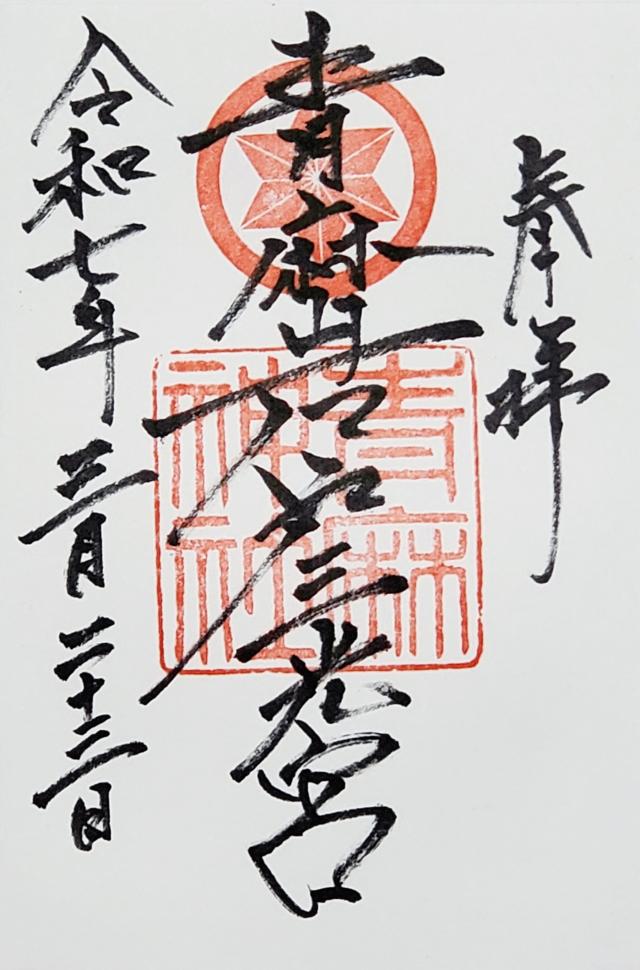 奉拝
青麻岩戸三光宮
令和七年三月二十三日
青麻
神社